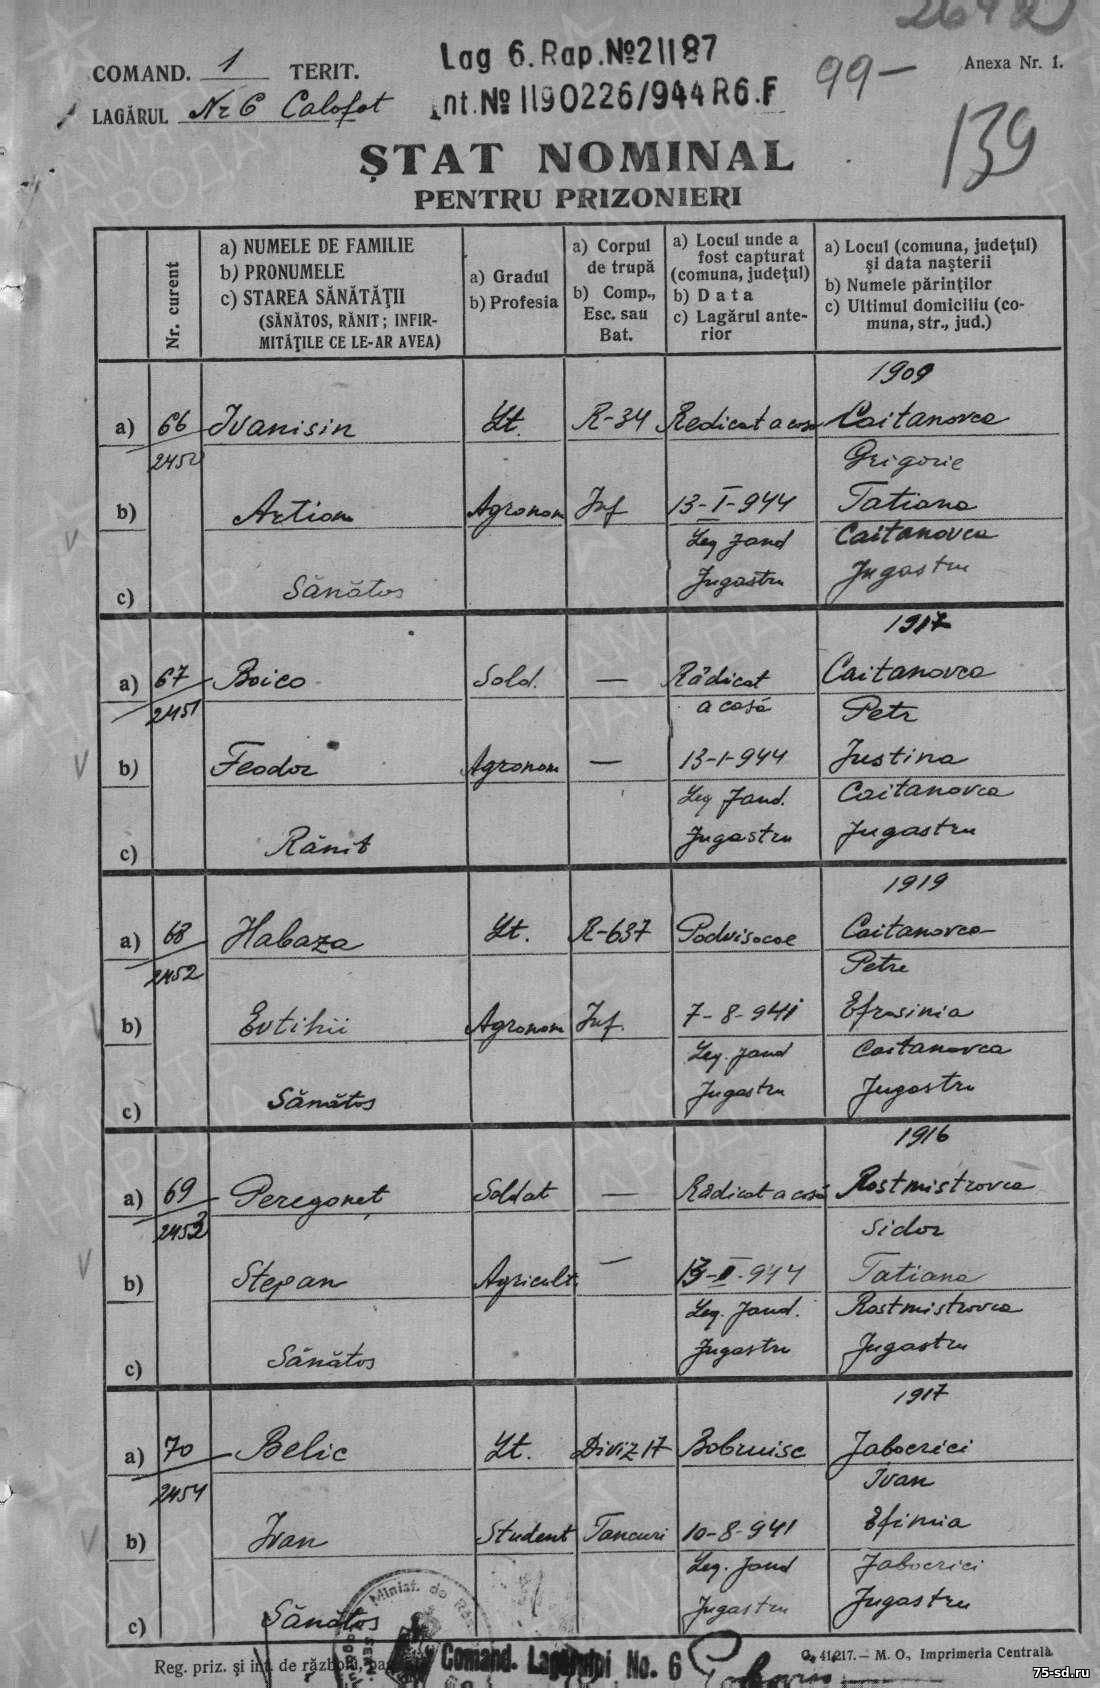 Lag 6. Rap. № 21187
Int. № 1190226/944 R6.F
99-
139
Anexa Nr. 1.
COMAND. 1 TERIT.
LAGĂRUL Nr 6 Calafat
ȘTAT NOMINAL
PENTRU PRIZONIERI
Nr. curent
a) NUMELE DE FAMILIE
b) PRONUMELE
c) STAREA SĂNĂTĂȚII
(SĂNĂTOS, RĂNIT; INFIR-
MITĂȚILE CE LE-AR AVEA)
a) Gradul
b) Profesia
a) Corpul
de trupă
b) Comp.,
Esc. sau
Bat.
a) Locul unde a
fost capturat
(comuna, județul)
b) Data
c) Lagărul ante-
rior
a) Locul (comuna, județul)
și data nașterii
b) Numele părinților
c) Ultimul domiciliu (co-
muna, str., jud.)
1909
a) 66 Ivanisin Lt. R-34 Redicat a casa Caitanovca
2450 Grigorie
b) Artiom Agronom Inf 13-I-944 Tatiana
Leg Jand Caitanovca
c) Sănătos Jugastru Jugastru
1917
a) 67 Boico Sold. — Rădicat Caitanovca
2451 a casă Petr
b) Feodor Agronom — 13-1-944 Justina
Leg Jand. Caitanovca
c) Rănit Jugastru Jugastru
1919
a) 68 Habaza Lt. R-637 Podvisocoe Caitanovca
2452 Petre
b) Evtihii Agronom Inf. 7-8-941 Efrosinia
Leg. Jand Caitanovca
c) Sănătos Jugastru Jugastru
1916
a) 69 Peregoneț Soldat — Rădicat a casă Rostmistrovca
2453 Sidor
b) Stepan Agricult. — 13-II-944 Tatiana
Leg. Jand. Rostmistrovca
c) Sănătos Jugastru Jugastru
1917
a) 70 Belic Lt. Diviz 17 Bobruisc Jabocrici
2454 Ivan
b) Ivan Student Tancuri 10-8-941 Efimia
Leg. Jand Jabocrici
c) Sănătos Jugastru Jugastru
Minist. de
Reg. priz. și int. de război,
Comand. Lagărului No. 6
C. 41,217. — M. O., Imprimeria Centrală
75-sd.ru
ПАМЯТЬ
НАРОДА